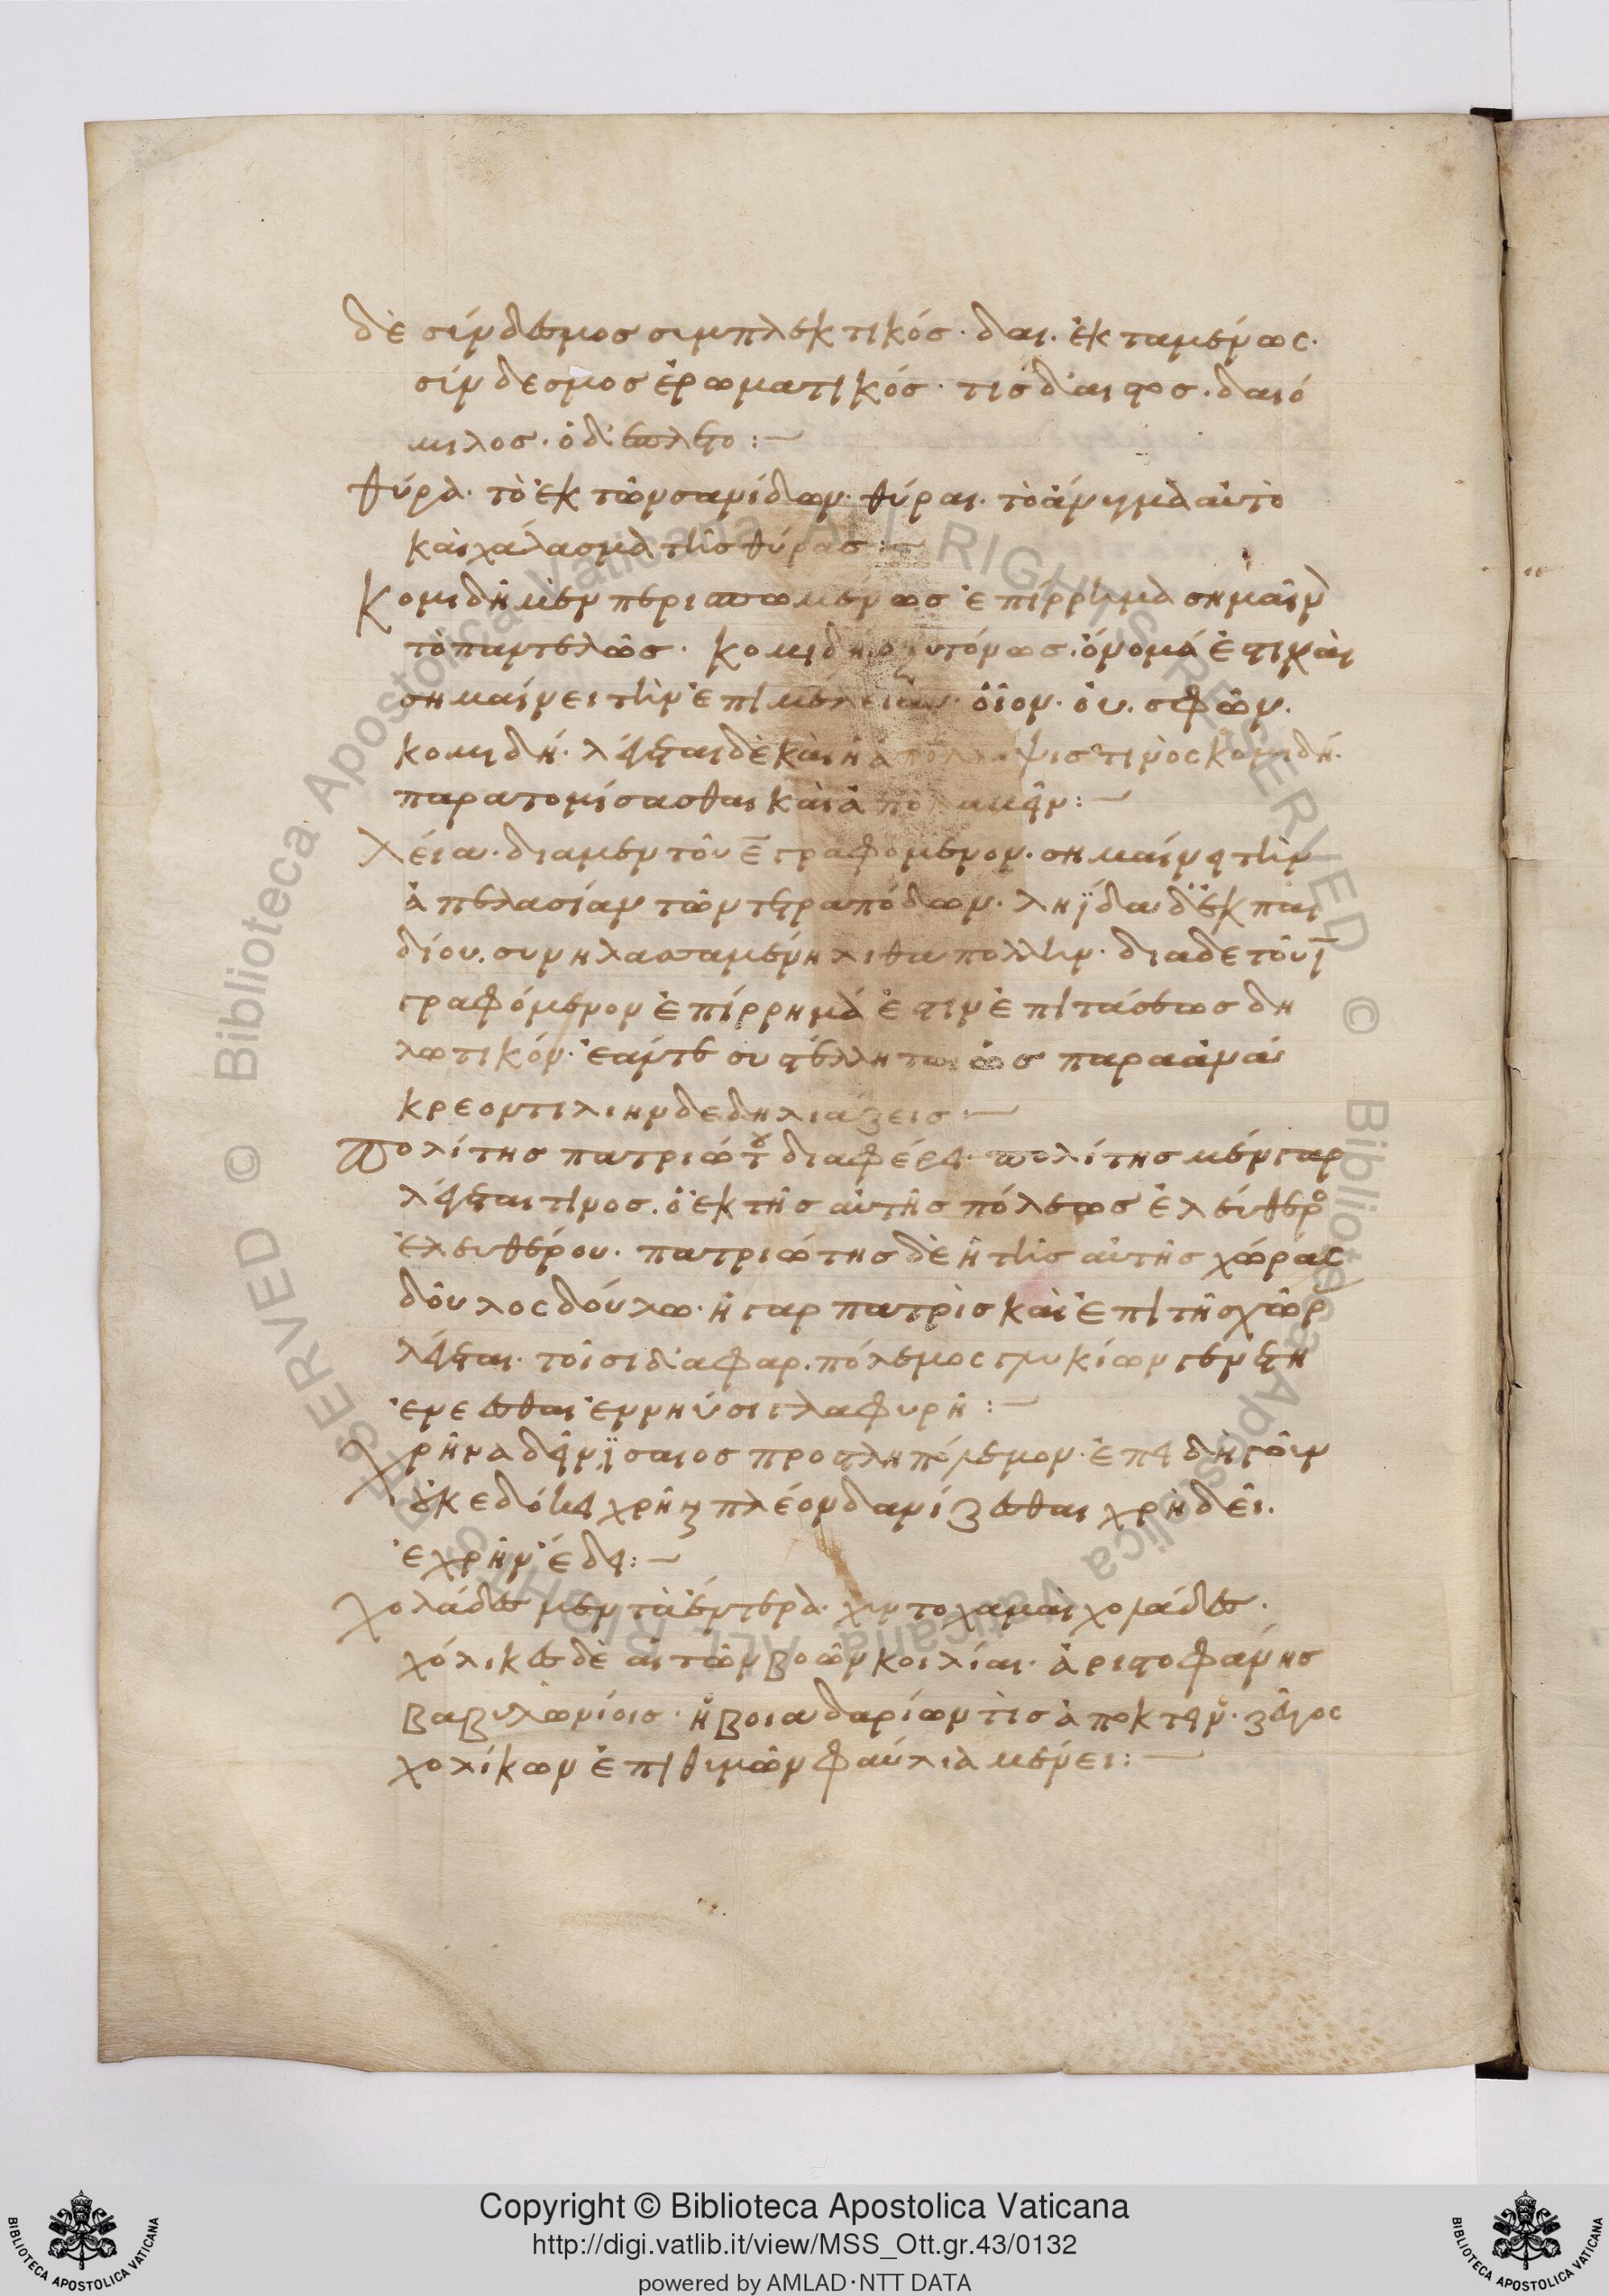 δὲ σύνδεσμος συμπλεκτικός· δαι· ἐκταμένως·
σύνδεσμος ἐρωματικός· τίς δαὶ φος· δαιό
μιλος· ὁδ' ἔπλετο:—
θύρα· τὸ ἐκ τῶν σανίδων· θύραι· τὸ ἄνοιγμα αὐτὸ
καὶ χάλασμα τῆς θύρας:—
Κομιδῆ μὲν περισπωμένως ἐπίρρημα σημαῖν
τὸ παντελῶς· κομιδὴ ὀξυτόνως· ὄνομά ἐστι καὶ
σημαίνει τὴν ἐπιμέλειαν· οἷον· οὐ· σφῶν·
κομιδή· λέγεται δὲ καὶ ἡ ἀπόληψις τινὸς κομιδή·
παρα τομίσασθαι καὶ ἀπολαβεῖν:—
Λεία· διαμεν τοῦ ε̄ γραφομενον· σημαίνει τὴν
ἀπελασίαν τῶν τετραπόδων· ληΐδα δ' ἐκ παι
δίου· συνηλασσαμένη λιθα πολλὴν· δια δε τοῦ ῑ
γραφόμενον ἐπίρρημά ἐστιν ἐπιτάσεως δη
λωτικόν· ἐάντε συστέλληται ὡς παρα ἀνα
κρεοντι λιην δε δηλιάζεις·—
Πολίτης πατριώτου διαφέρει· πολίτης μέν γαρ
λέγεται τινος· ὁ ἐκ τῆς αὐτῆς πόλεως ἐλεύθερο
ἐλευθέρου· πατριώτης δὲ ἢ τῆς αὐτῆς χώρας
δοῦλος δούλω· ἡ γαρ πατρὶς καὶ ἐπὶ τῆς χώρ
λέγεται· τοῖσι δ' ἀφαρ· πόλεμος γλυκίων γενετη
ἐνεεσθαι ἐν νηυσι γλαφυρῆ:—
Χρῆνα δεῖν ϊσαιος προς τληπόλεμον· ἐπει δὴ γοῦν
οὐκ ἐδόκει χρῆν πλέον δανίζεσθαι χρὴ δεῖ·
ἐχρῆν ἔδει:—
χολάδες μεν τὰ ἔντερα· χυντο χαμαὶ χολάδες·
χόλικες δὲ αἱ τῶν βοῶν κοιλίαι· ἀριστοφάνης
βαβυλωνίοις· ἢ βοιαδαρίων τὶς ἀποκτειν· ζεῦγος
χολίκων ἐπιθυμῶν φαύλια μένει:—
Copyright © Biblioteca Apostolica Vaticana
http://digi.vatlib.it/view/MSS_Ott.gr.43/0132
powered by AMLAD·NTT DATA
BIBLIOTECA APOSTOLICA VATICANA
BIBLIOTECA APOSTOLICA VATICANA